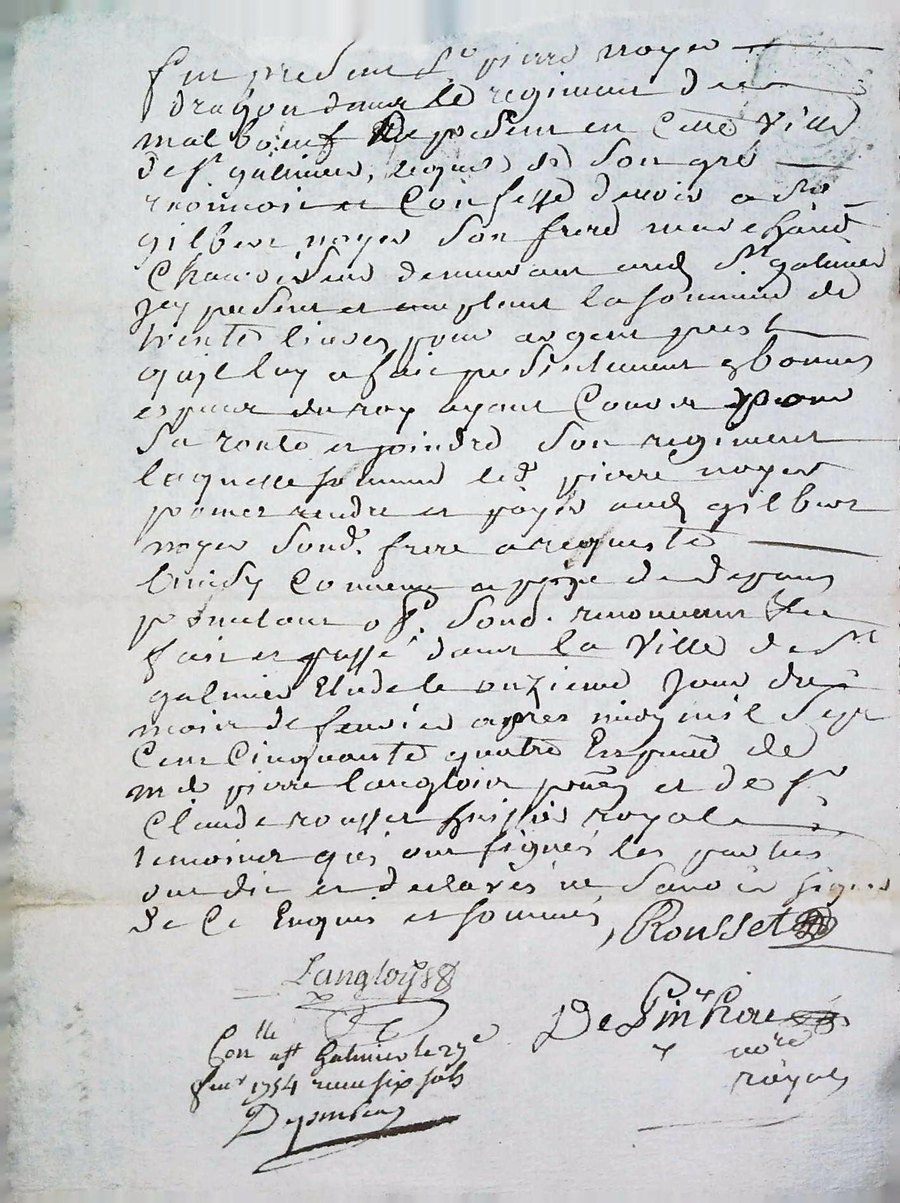 fut present Sr pierre noyer
dragon dans le regiment de
malboeuf present en cette Ville
de st galmier, lequel de son gré
reconnoit et Confesse devoir a Sr
gilbert noyer son frere marchand
Chamoiseur demeurant aud St galmier
jcy present et acceptant la somme de
trente livres pour argent prest
quil luy a fait presentement en bonnes
especes du roy ayant Cours pour
sa route et joindre son regiment
laquelle somme led pierre noyer
promet rendre et payer aud gilbert
noyer sond. frere a requeste
Comme a peyne de depans
sond. renonceant
fait et passé dans la Ville de St
galmier Etude le onzieme jour du
mois de fevrier apres midy mil Sept
Cent Cinquante quatre En pnce de
me pierre langlois et de sr
Claude rousset huissier royal
temoins qui ont signés les parties
ont dit et declarés ne savoir signer
de Ce Enquis et sommés, Rousset
Langloys
De
nore
royal
Conlle a st Galmier le 23e
fevr 1754 receu six sols